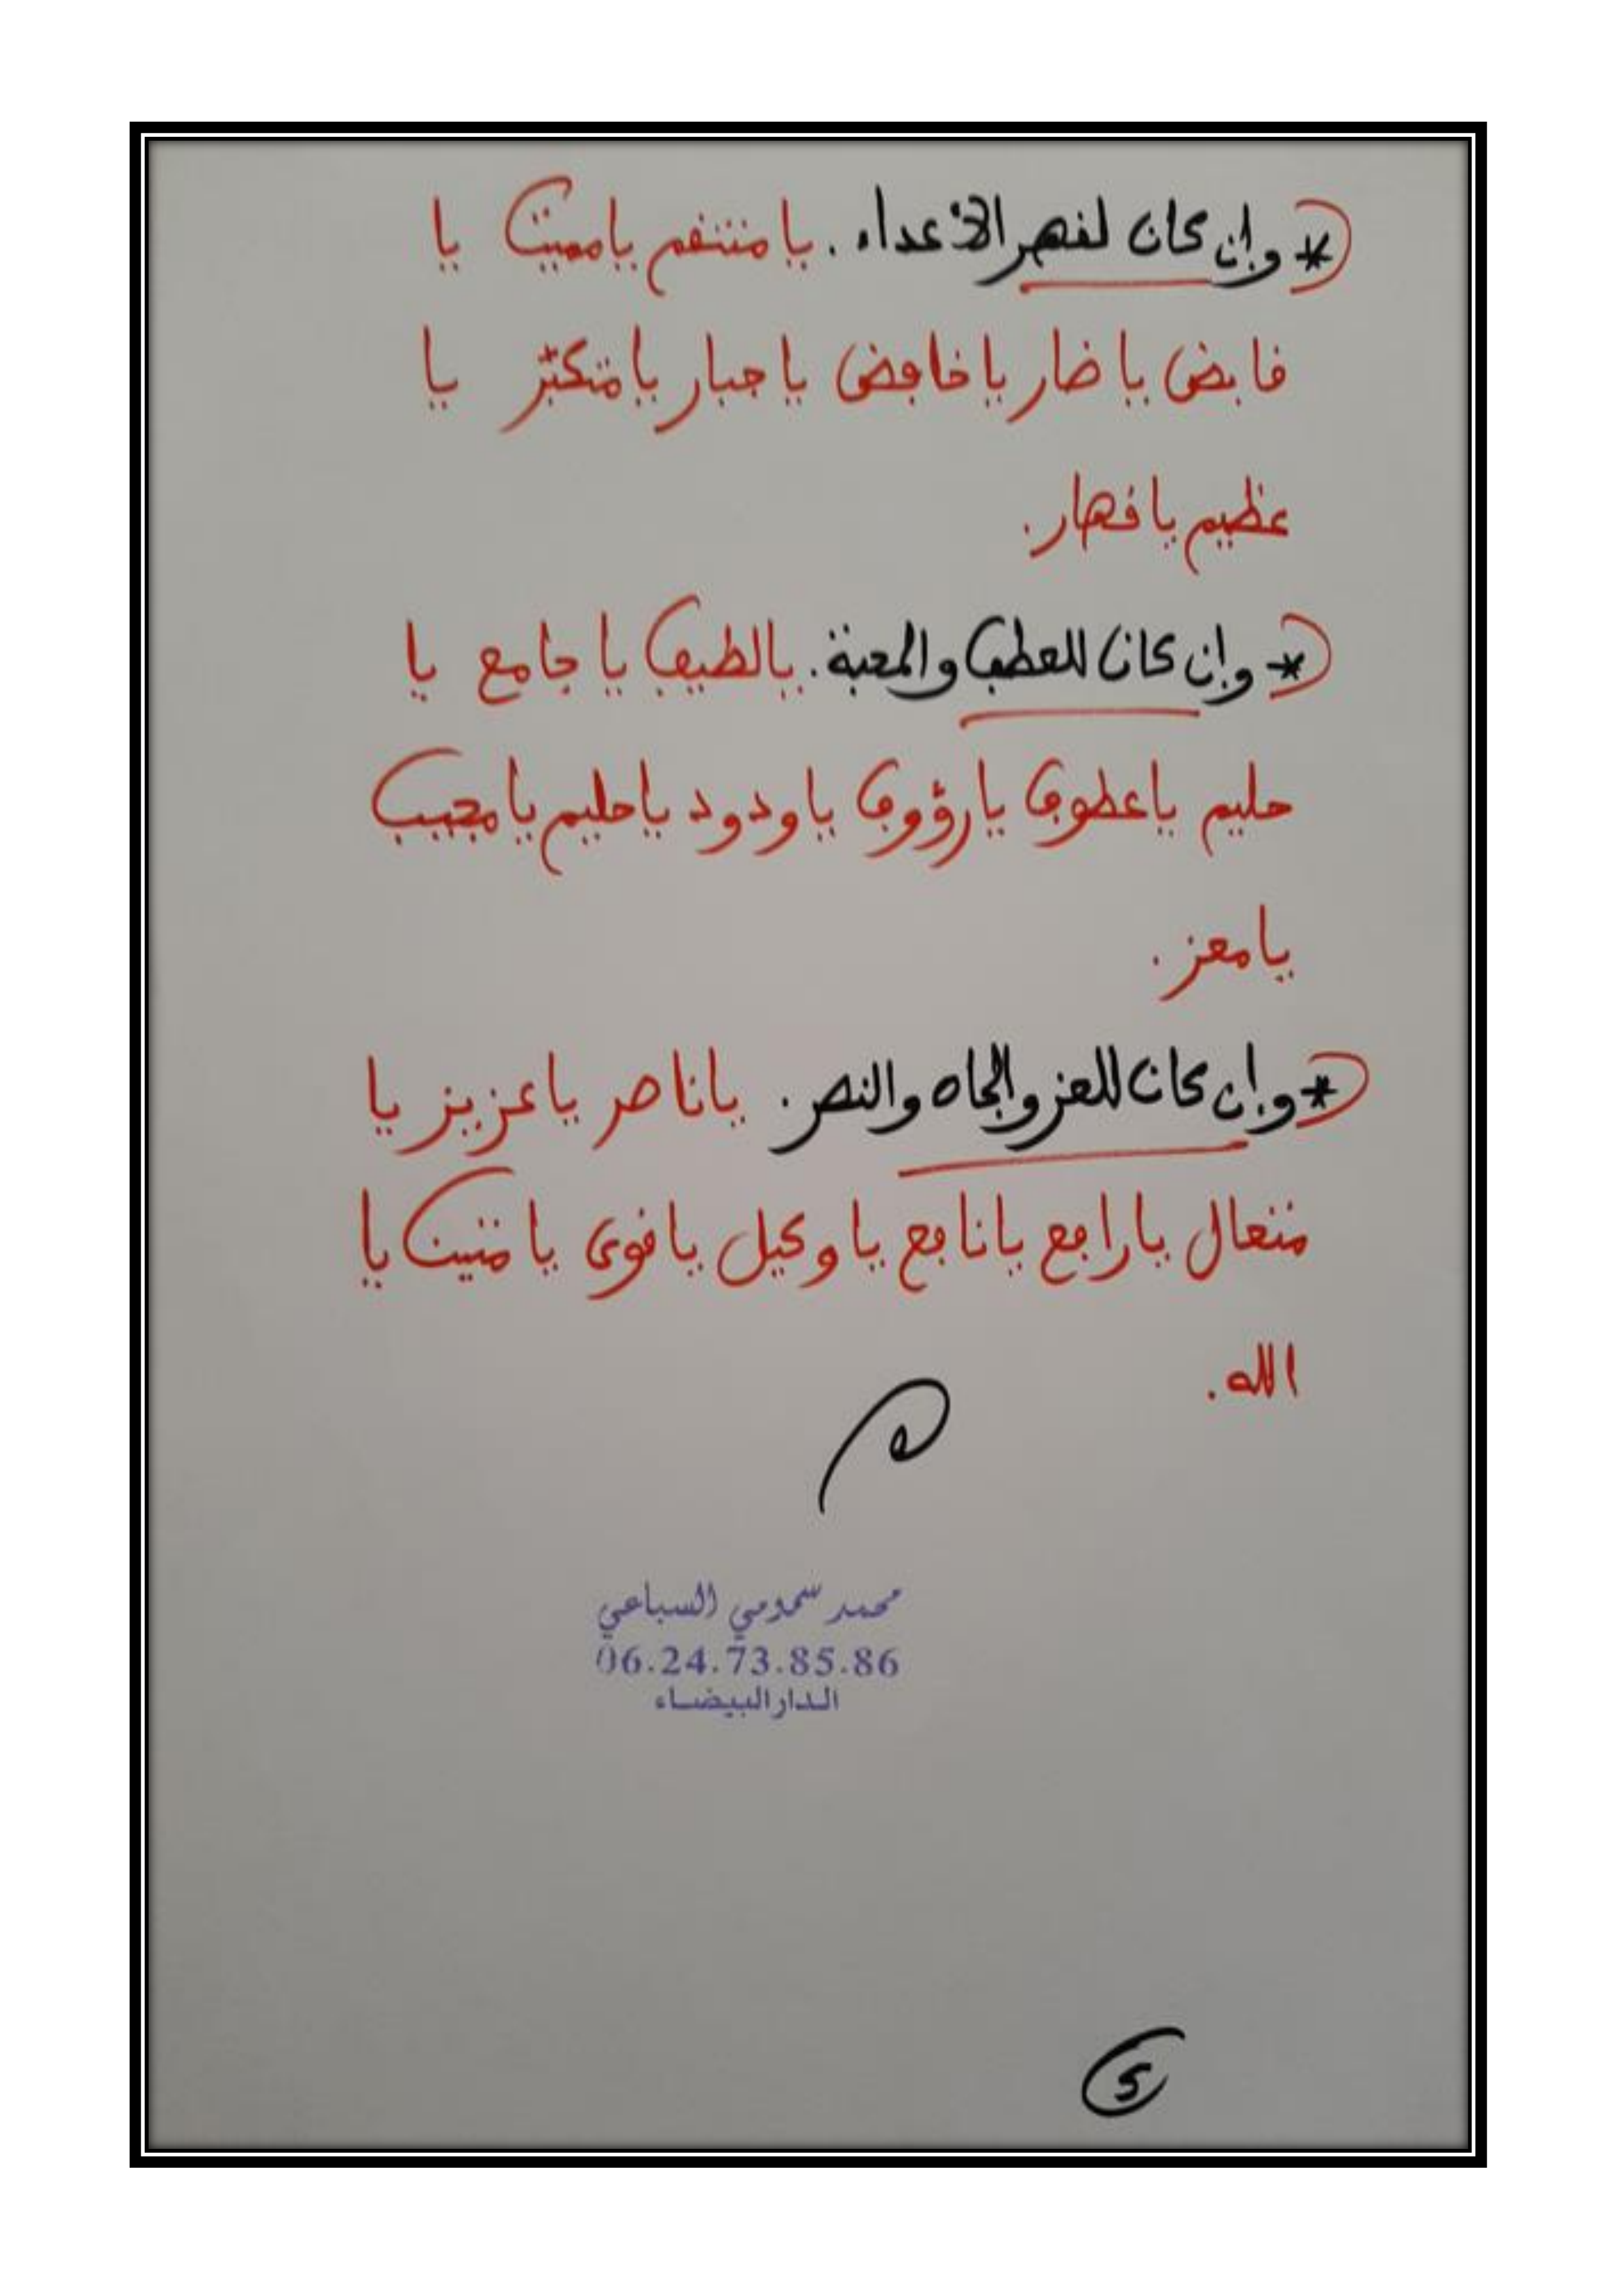 * وإن كان لقهر الأعداء. يا منتقم يا مميت يا
قابض يا ضار يا خافض يا جبار يا متكبّر يا
عظيم يا قهار.
* وإن كان للعطف والمحبة. يا لطيف يا جامع يا
حليم يا عطوف يا رؤوف يا ودود يا حليم يا مجيب
يا معز.
* وإن كان للعز والجاه والنصر. يا ناصر يا عزيز يا
متعال يا رافع يا نافع يا وكيل يا قوي يا متين يا
الله.
محمد سمومي السباعي
06.24.73.85.86
الدار البيضاء
5